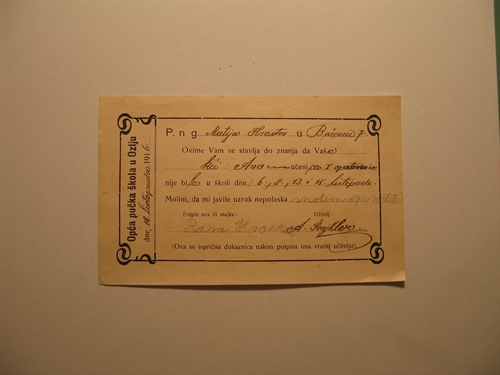 Opća pučka škola u Ozlju
dne, 18. listopada 1916.
P. n. g. Matija Hrastov u
Ovime Vam se stavlja do znanja da Vaša
kći: Ana učeni
nije bila u školi dne 6., 8., 13. i 15. listopada.
Molim, da mi javite uzrok nepolaska molim oprostite
Potpis oca ili majke: Učitelj:
A.
(Ova se isprična dokaznica nakon potpisa ima vratiti učitelju.)